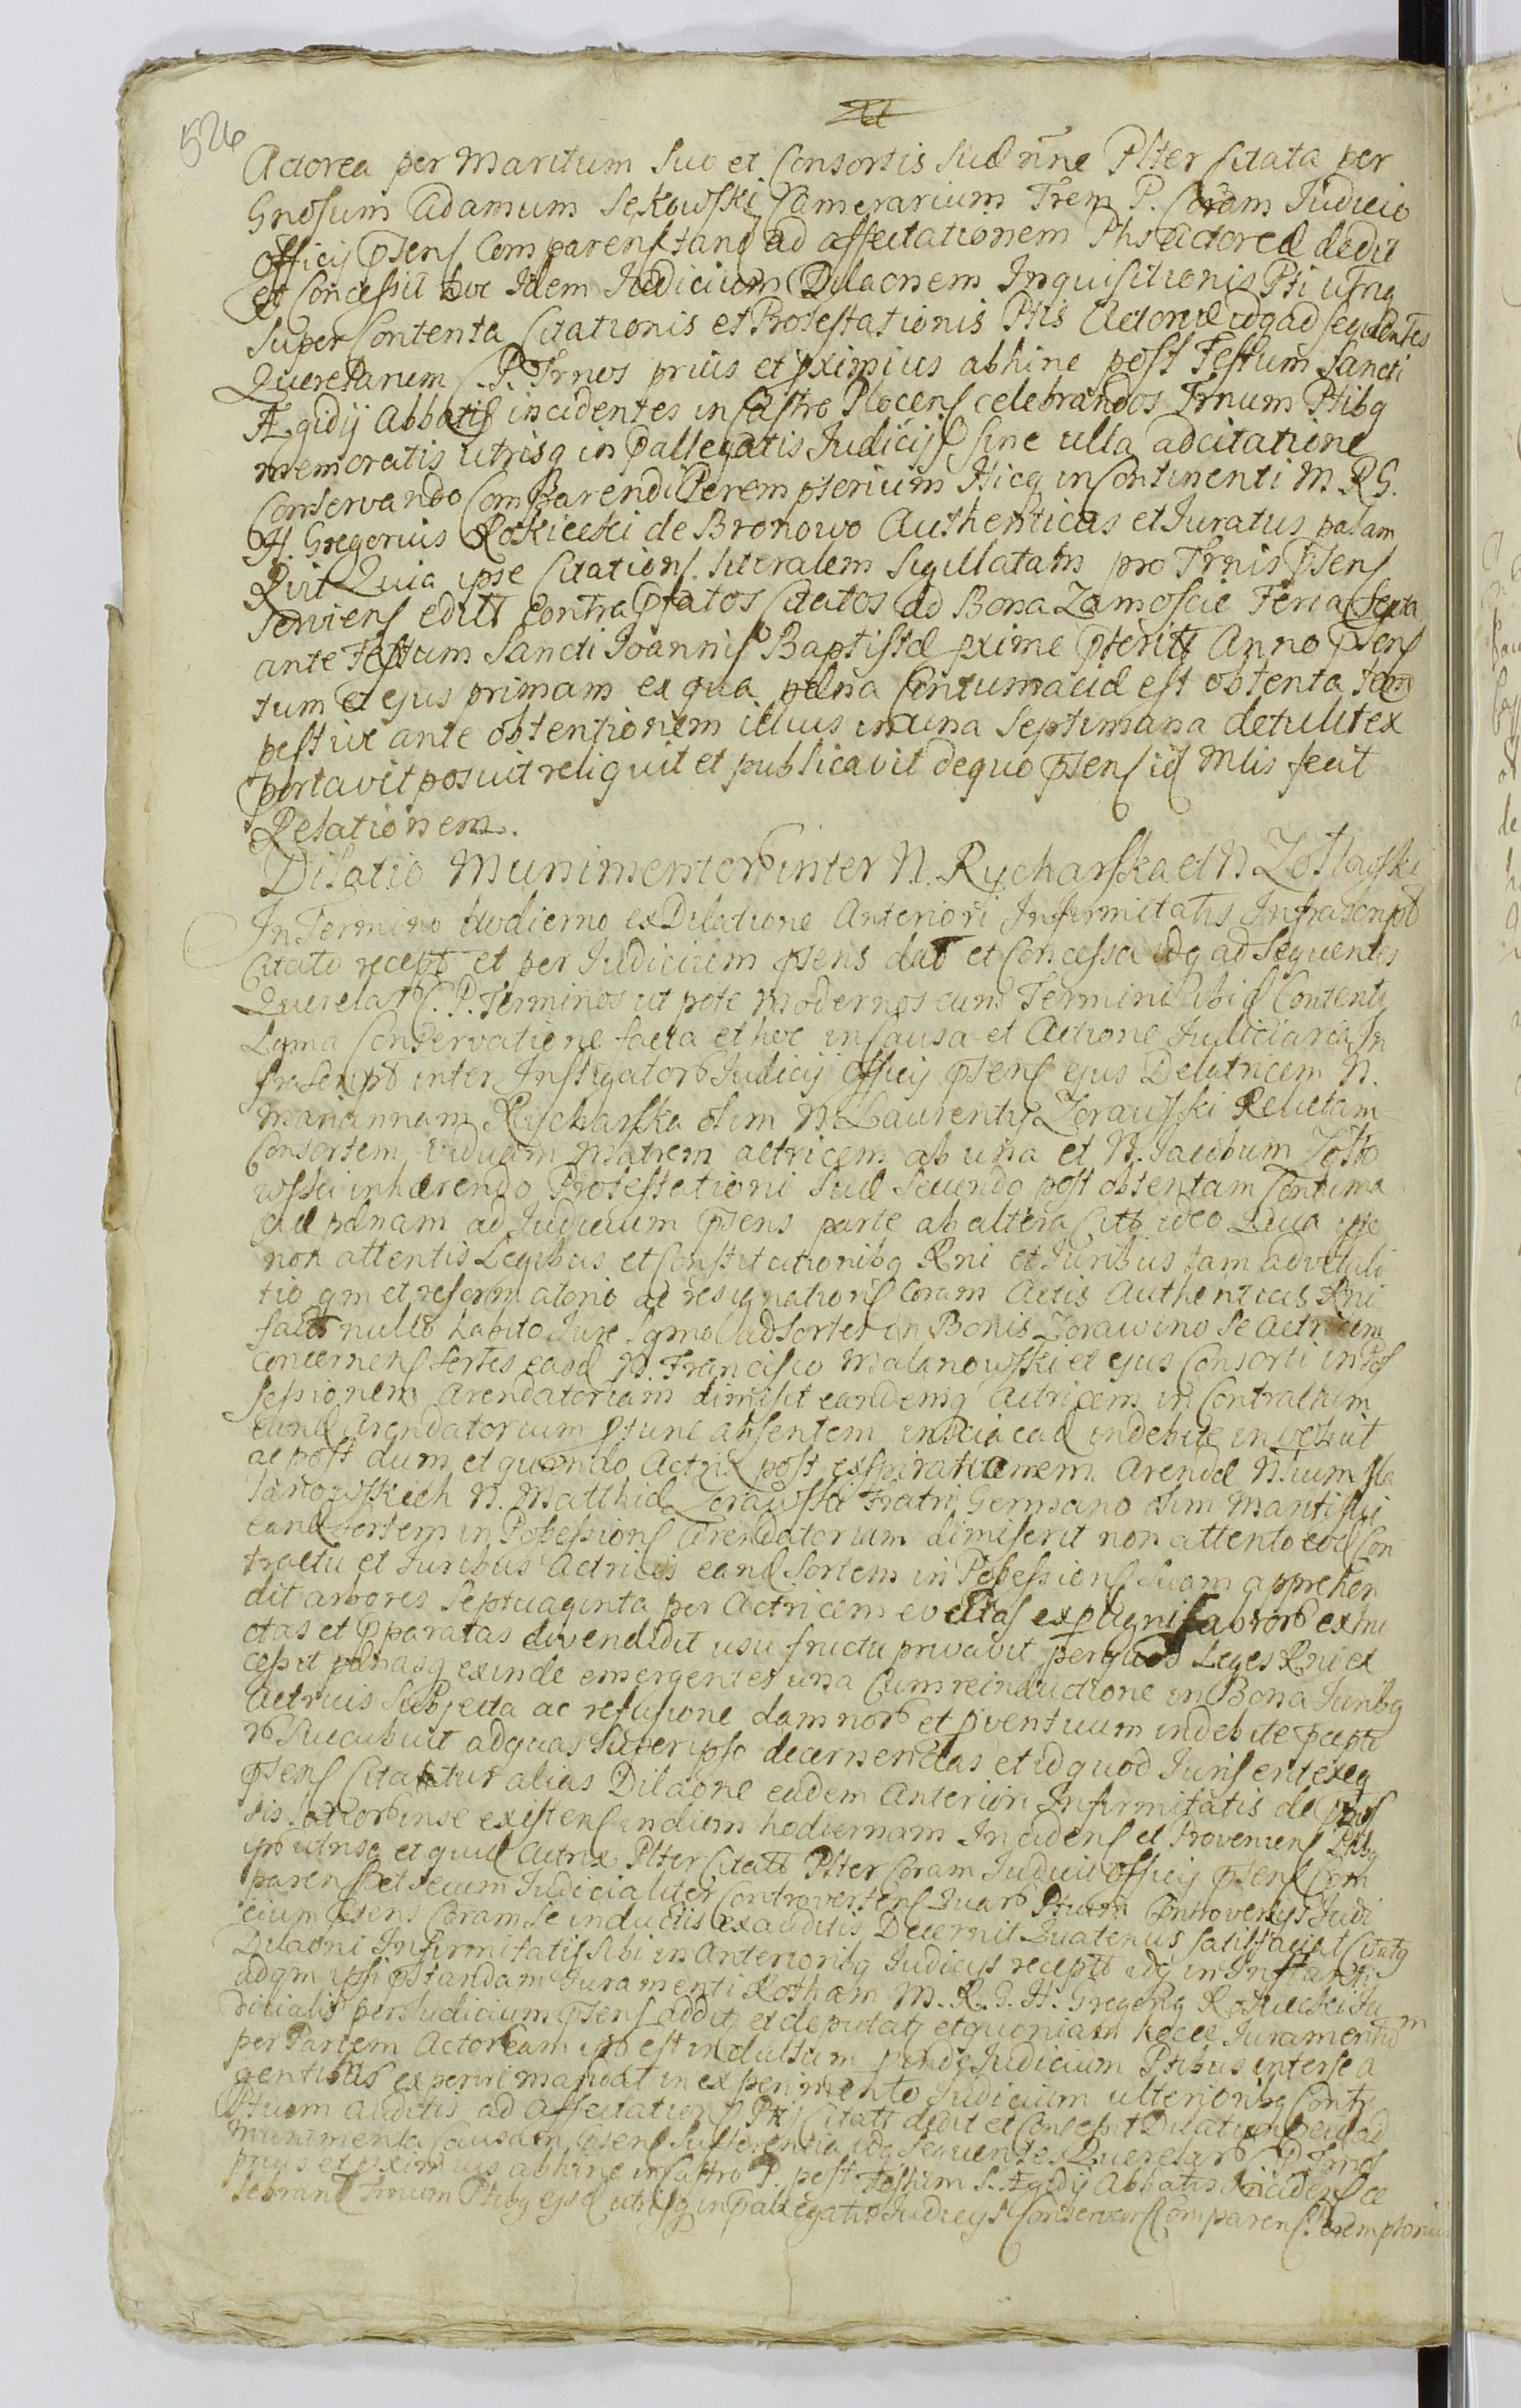 526
Actorea per Maritum Suo et Consortis Suæ nñe Ptter Citata per
Gnosum Adamum Sękowski Camerarium Trem P. Coram Judicio
Officij pñsenſ Comparenſ tand ad affectationem Phs Actoreæ dedit
et Concessit hoc Idem Judicium Dilaõnem Inquisitionis Pti utrinq
Super Contenta Citationis et Protestationis Ptis Actoreæ idq ad sequentes
Querelarum C. P. Trnos prius et pximius abhinc post Festum Sancti
Ægidij Abbatis incidentes in Castro Plocenſ celebrandos Trnum Ptibq
memoratis utrisq in pallegatis Judicijs sine ulla adcitatione
Conservando Comparendi Peremptorium Hicq in Continenti M. R G.
H. Gregorius Rokicki de Bronowo Authenticus et Juratus palam
Quia ipse Citationſ literalem Sigillatam pro Trnis pñsenſ
Servienſ edit contra pfatos Citatos ad Bona Zamoscie Feria Sexta
ante Festum Sancti Joannis Baptistæ pxime pterit Anno pñsenſ
tum et ejus primam ex qua pæna Contumaciæ est obtenta tem
pestive ante obtentionem illius in una Septimana detulit ex
portavit posuit reliquit et publicavit de quo pñsenſ id Mlis fecit
Relationem.
Dilatio Munimentorb inter N. Rycharska et N Zottowski
In Termino hodierno ex Dilatione Anteriori Infirmitatis Infrascript
Citato recept et per Judicium pñsens dat et Concessa idq ad Sequentes
Querelar C. P. Terminos ut pote Modernos cum Termini ibid Contenti
Lgma Conservatione facta et hoc in Causa et Actione Judiciaria In
frascript inter Instigatorb Judicij Officij pñsenſ ejus Delatricem N.
Mariannam Rycharska olim N. Laurentij Zorawski Relictam
Consortem Viduam Matrem actricem ab una et N. Jacobum Zotto
wski inhærendo Protestationi Suæ Secundo post obtentam Contuma
ciæ pænam ad Judicium pñsens parte ab altera Citt ideo Quia ipse
non attentis Legibus et Constitutionibq Rni et Juribus tam advitali
tio qm et reformatorio ac resignationiſ Coram Actis Authenticis Rni
fact nullo habito Jure Lgmo ad Sortes in Bonis Zorawino Se Actricem
Concernenſ Sortes easd N. Francisco Malanowski et ejus Consorti in Pos
sessionem Arendatoriam dimisit eandemq Actricem in Contractum
eund Arendatorium ptunc absentem insciaead indebite invexit
ac post dum et quando Actrix post expirationem Arendæ N.rum Ma
lanowskich N. Matthiæ Zorawski Fratri Germano olim Mariti sui
eand Sortem in Possessionſ Arendatorium dimiserit non attento eod Con
tractu et Juribus Actricis eand Sortem in Possessionſ Suam apprehen
dit arbores Septuaginta per Actricem evectas ex pugnis laborb exstru
ctas et pparatas divendidit usu fructu privavit per quod Leges Rni ex
cessit pænasq exinde emergentes una Cum reinductione in Bona Juribq
Actricis Subjecta ac refusione damnorb et pventuum indebite pcepto
rb Succubuit ad quas Super ipso decernendas et id quod Juris erit exeq
pñsenſ Citabatur alias Dilaõne eadem Anteriori Infirmitatis de
in se existenſ in diem hodiernam Incidenſ et Provenienſ Ptibq
ipb utrisq et quid Actrix Ptter Citatt Ptter Coram Judicio Officij pñsenſ Com
parenſ et Secum Judicialiter Controvertenſ Quarb Ptium Controversijs Judi
cium pñsens Coram Se inductis exauditis Decernit Quatenus Satisfaciat Citatq
Dilaõni Infirmitatis Sibi in Anterioribq Judicijs recept idq in Instanti
ad qm ipsi pstandam Juramenti Rotham M. R. G. H. Gregorig Rokicki Ju
dicialis per Judicium pñsenſ additq et deputatq et quoniam hocce Juramentum
per Partem Actoream ipb est indultum pinde Judicium Ptibus inter se a
gentibus experiri mandat in experimento Judicium ulterioribq Contr
Ptium auditis ad Affectationſ Ptij Citatt dedit et Concessit Dilationſ eid ad
Munimenta Causam pñsenſ Sufferentia idq Sequentes Querelarb C. P. Trnos
prius et pximius abhinc in Castro P. post Festum S. Ægidij Abbatis Incidenſ ce
lebrand Trnum Ptibq ejsd utrisq in pallegatis Judicijs Conservanſ Comparenſ Peremptorium